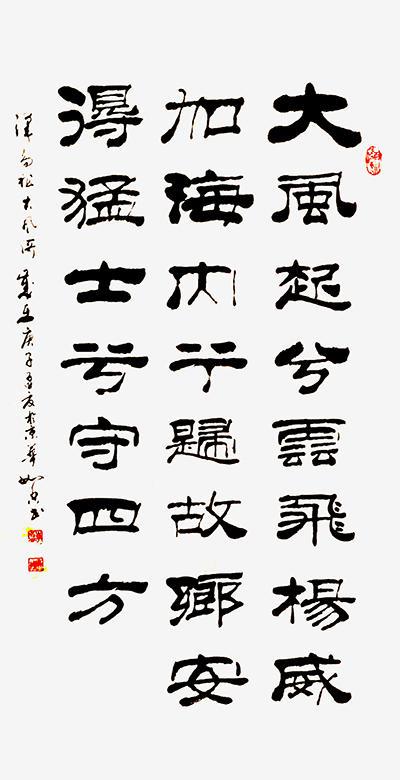 大風起兮雲飛楊威
加海内兮歸故鄉安
得猛士兮守四方
漢高祖大風歌 歲在庚子 於京華 書